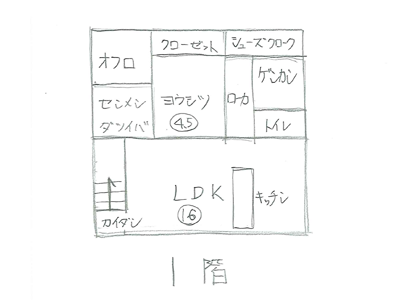 クローゼット
シューズクローク
オフロ
ゲンカン
センメン
ダツイバ
ヨウシツ
4.5
ローカ
トイレ
LDK
16
キッチン
カイダン
1階